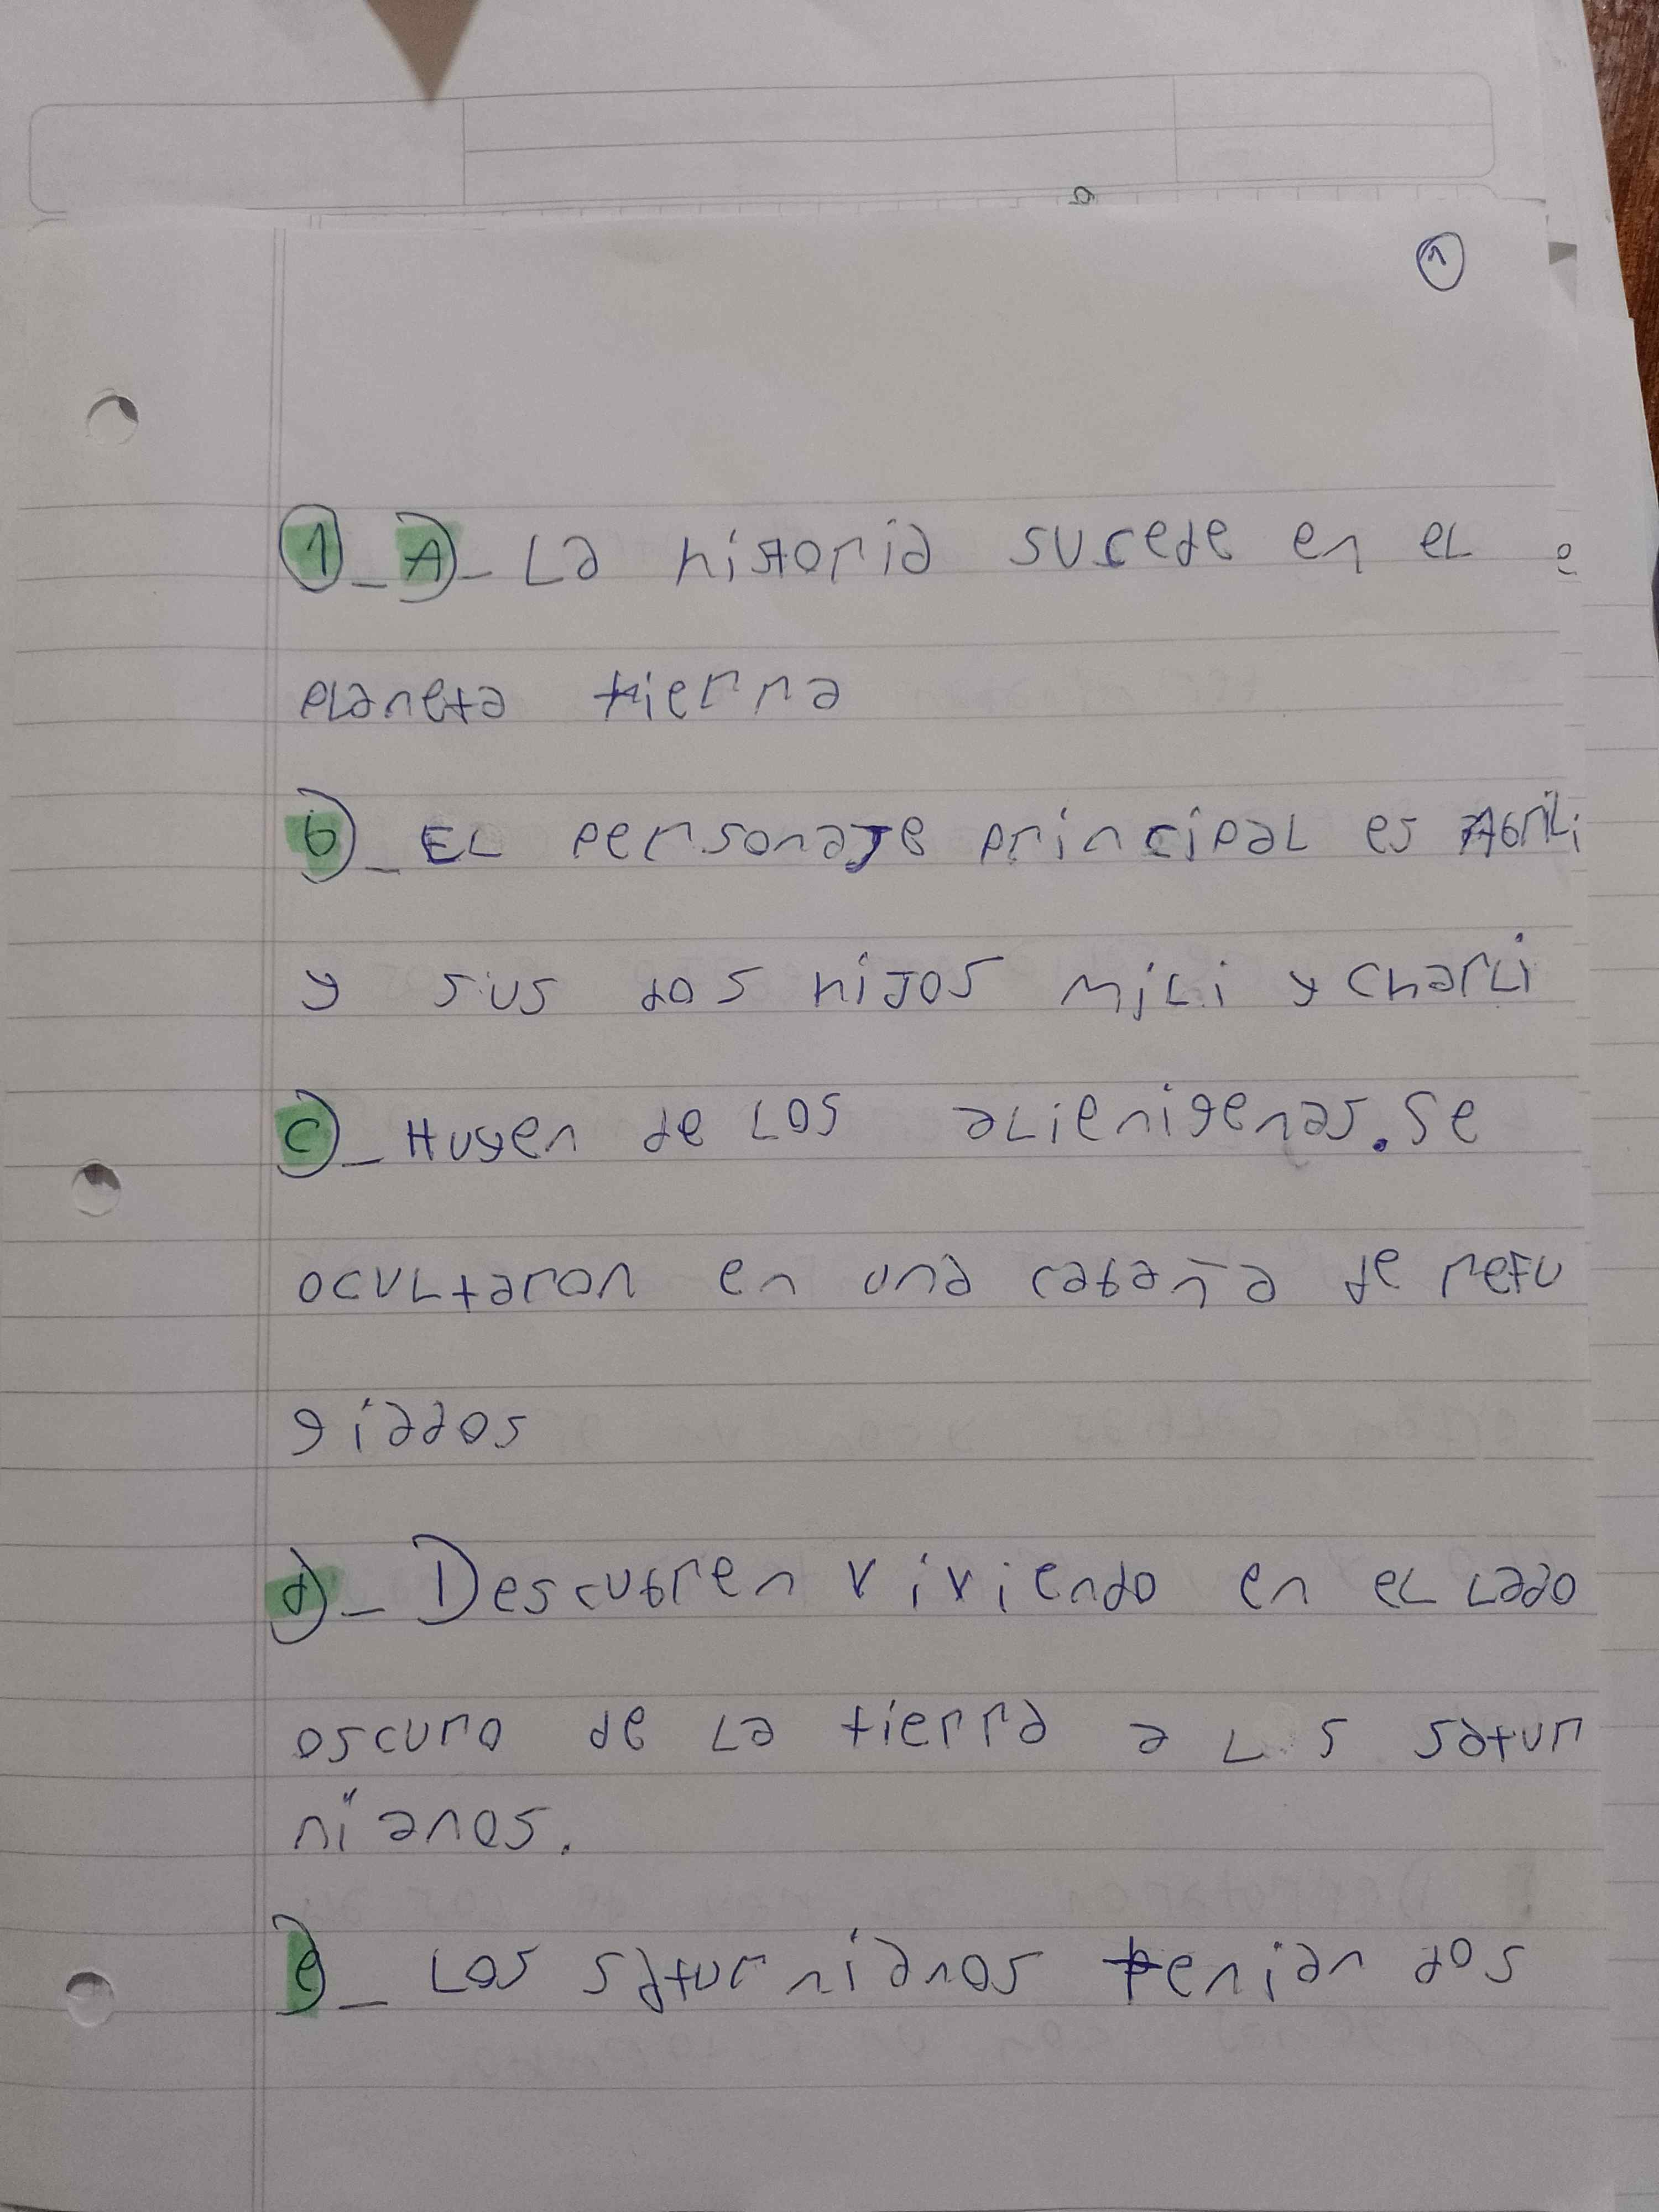 1
1_A)_ La historia sucede en el e
planeta tierra
b)_ El personaje principal es Abrili
y sus dos hijos mili y charli
c)_ Huyen de los alienigenas. Se
ocultaron en una cabaña de refu
giados
d)_ Descubren viviendo en el lado
oscuro de la tierra a L s satur
nianos.
e)_ Los saturnianos tenian dos